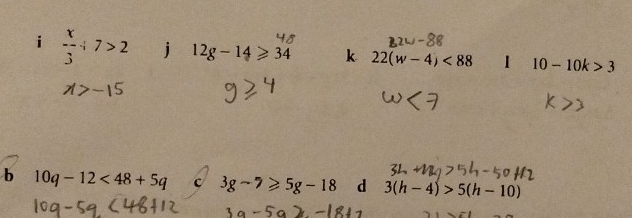 48 22w-88
i x/3 + 7 > 2 j 12g - 14 ⩾ 34 k 22(w - 4) < 88 l 10 - 10k > 3
x > -15 g ⩾ 4 w < 7 k > 3
3h
b 10q - 12 < 48 + 5q c 3g - 7 ⩾ 5g - 18 d 3(h - 4) > 5(h - 10)
10q - 5q < 48 + 12 3g - 5g ⩾ -18 + 7